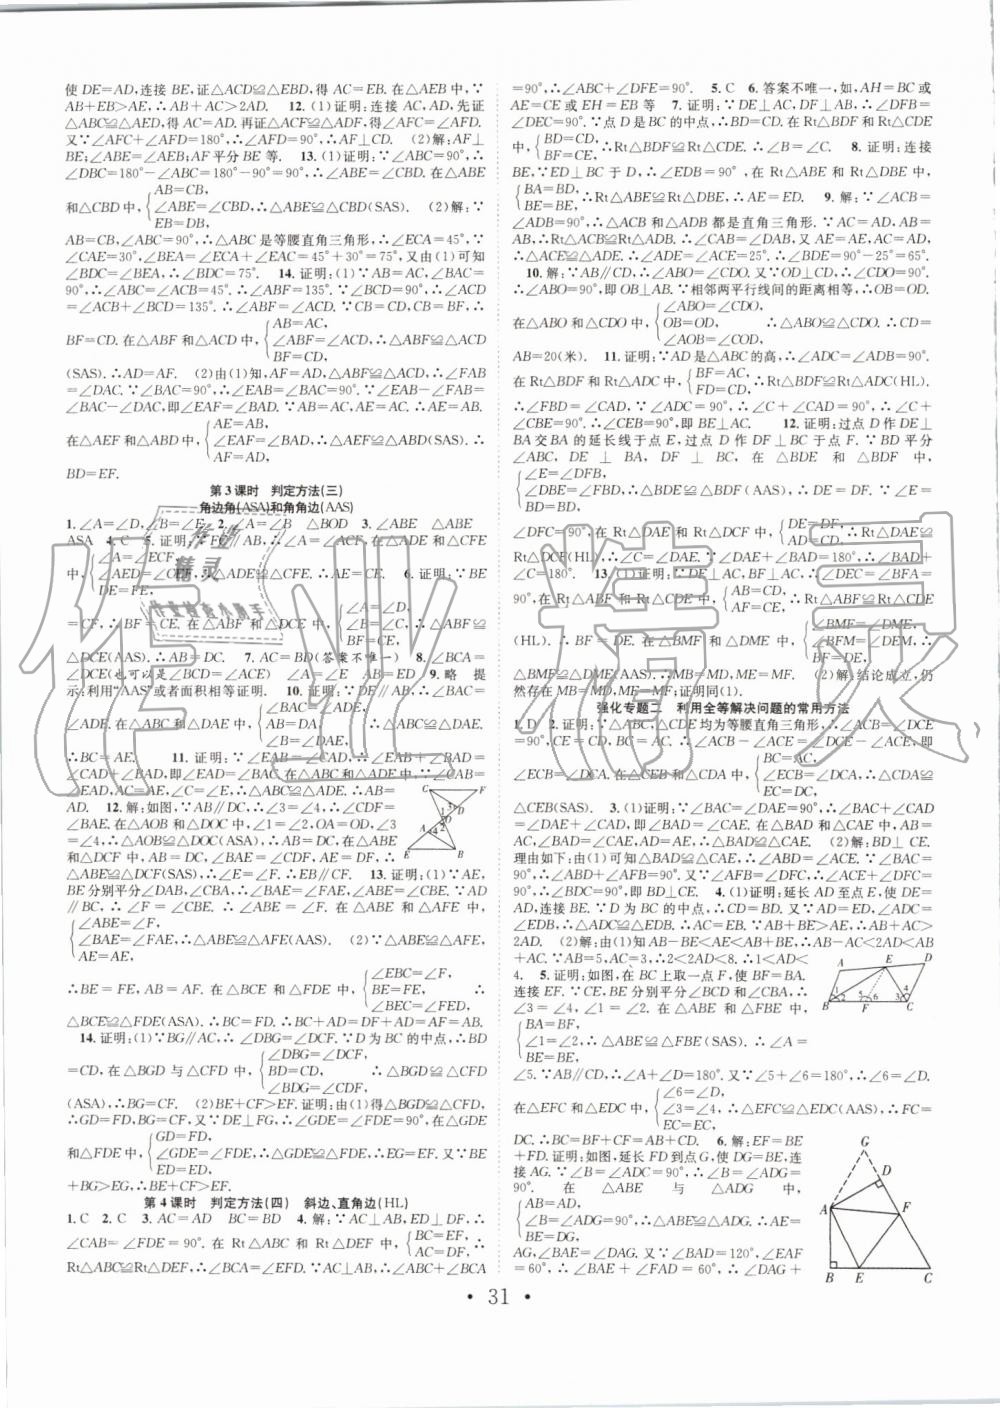 使 DE=AD,连接 BE,证△ACD≌△EBD,得 AC=EB. 在△AEB 中,∵
AB+EB>AE,∴AB+AC>2AD. 12. (1)证明:连接 AC,AD,先证
△ABC≌△AED,得 AC=AD. 再证△ACF≌△ADF,得∠AFC=∠AFD.
又∵∠AFC+∠AFD=180°,∴∠AFC=∠AFD=90°,∴AF⊥CD. (2)解:AF⊥
BE;∠ABE=∠AEB;AF平分 BE 等. 13. (1)证明:∵∠ABC=90°,∴
∠DBC=180°-∠ABC=180°-90°=90°,∴∠ABE=∠CBD. 在△ABE
和△CBD 中,
AB=CB,
∠ABE=∠CBD,∴△ABE≌△CBD(SAS). (2)解:∵
EB=DB,
AB=CB,∠ABC=90°,∴△ABC 是等腰直角三角形,∴∠ECA=45°,∵
∠CAE=30°,∠BEA=∠ECA+∠EAC=45°+30°=75°,又由(1)可知
∠BDC=∠BEA,∴∠BDC=75°. 14. 证明:(1)∵AB=AC,∠BAC=
90°,∴∠ABC=∠ACB=45°,∴∠ABF=135°. ∵∠BCD=90°,∴∠ACD=
∠ACB+∠BCD=135°. ∴∠ABF=∠ACD. ∵CB=CD,CB=BF,∴
BF=CD. 在△ABF 和△ACD 中,
AB=AC,
∠ABF=∠ACD,∴△ABF≌△ACD
BF=CD,
(SAS). ∴AD=AF. (2)由(1)知,AF=AD,△ABF≌△ACD,∴∠FAB
=∠DAC. ∵∠BAC=90°,∴∠EAB=∠BAC=90°. ∵∠EAB-∠FAB=
∠BAC-∠DAC,即∠EAF=∠BAD. ∵AB=AC,AE=AC. ∴AE=AB.
在△AEF 和△ABD 中,
AE=AB,
∠EAF=∠BAD,∴△AEF≌△ABD(SAS). ∴
AF=AD,
BD=EF.
第 3 课时 判定方法(三)
角边角(ASA)和角角边(AAS)
1. ∠A=∠D,∠B=∠E 2. ∠A=∠B △BOD 3. ∠ABE △ABE
ASA 4. C 5. 证明:∵FC∥AB,∴∠A=∠ECF. 在△ADE 和△CFE
中,
∠A=∠ECF,
∠AED=∠CEF,∴△ADE≌△CFE. ∴AE=CE. 6. 证明:∵BE
DE=FE,
=CF,∴BF=CE. 在△ABF 和△DCE 中,
∠A=∠D,
∠B=∠C,∴△ABF≌
BF=CE,
△DCE(AAS). ∴AB=DC. 7. AC=BD(答案不唯一) 8. ∠BCA=
∠DCE(或∠ACD=∠BCE) ∠A=∠E AB=ED 9. 略 提
示:利用“AAS”或者面积相等证明. 10. 证明:∵DE∥AB,∴∠BAC=
∠ADE. 在△ABC 和△DAE 中,
∠BAC=∠ADE,
AB=DA,
∠B=∠DAE,
∴△ABC≌△DAE.
∴BC=AE. 11. 证明:∵∠EAB=∠CAD,∴∠EAB+∠BAD=
∠CAD+∠BAD,即∠EAD=∠BAC. 在△ABC 和△AED 中,∵∠CAB=
∠EAD,AC=AE,∠C=∠E,∴△ABC≌△ADE(ASA). ∴AB=
AD. 12. 解:如图,∵AB∥DC,∴∠3=∠4,∴∠CDF=
∠BAE. 在△AOB 和△DOC 中,∠1=∠2,OA=OD,∠3
=∠4,∴△AOB≌△DOC(ASA). ∴AB=DC,在△ABE
和△DCF 中,AB=DC,∠BAE=∠CDF,AE=DF,∴
△ABE≌△DCF(SAS). ∴∠E=∠F. ∴EB∥CF. 13. 证明:(1)∵AE,
BE 分别平分∠DAB,∠CBA,∴∠BAE=∠FAE,∠ABE=∠CBE. ∵AD
∥BC,∴∠F=∠CBE. ∴∠ABE=∠F. 在△ABE 和△AFE 中,
∠ABE=∠F,
∠BAE=∠FAE,∴△ABE≌△AFE(AAS). (2)∵△ABE≌△AFE,
AE=AE,
∴BE=FE,AB=AF. 在△BCE 和△FDE 中,
∠EBC=∠F,
BE=FE,
∠BEC=∠FED,
∴
△BCE≌△FDE(ASA). ∴BC=FD. ∴BC+AD=DF+AD=AF=AB.
14. 证明:(1)∵BG∥AC,∴∠DBG=∠DCF. ∵D 为 BC 的中点,∴BD
=CD,在△BGD 与△CFD 中,
∠DBG=∠DCF,
BD=CD,
∠BDG=∠CDF,
∴△BGD≌△CFD
(ASA),∴BG=CF. (2)BE+CF>EF. 证明:由(1)得△BGD≌△CFD,
∴GD=FD,BG=CF,又∵DE⊥FG,∴∠GDE=∠FDE=90°,在△GDE
和△FDE 中,
GD=FD,
∠GDE=∠FDE,∴△GDE≌△FDE,∴EG=EF. 又∵BE
ED=ED,
+BG>EG,∴BE+CF>EF.
第 4 课时 判定方法(四) 斜边、直角边(HL)
1. C 2. C 3. AC=AD BC=BD 4. 解:∵AC⊥AB,ED⊥DF,∴
∠CAB=∠FDE=90°. 在 Rt△ABC 和 Rt△DEF 中,
BC=EF,
AC=DF,
∴
Rt△ABC≌Rt△DEF,∴∠BCA=∠EFD. ∵AC⊥AB,∴∠ABC+∠BCA
=90°,∴∠ABC+∠DFE=90°. 5. C 6. 答案不唯一,如,AH=BC 或
AE=CE 或 EH=EB 等 7. 证明:∵DE⊥AC,DF⊥AB,∴∠DFB=
∠DEC=90°. ∵点 D 是 BC 的中点,∴BD=CD. 在 Rt△BDF 和 Rt△CDE
中,
BD=CD,
BF=CE,
∴Rt△BDF≌Rt△CDE. ∴∠B=∠C. 8. 证明:连接
BE,∵ED⊥BC 于 D,∴∠EDB=90°,在 Rt△ABE 和 Rt△DBE 中,
BA=BD,
BE=BE,
∴Rt△ABE≌Rt△DBE,∴AE=ED. 9. 解:∵∠ACB=
∠ADB=90°,∴△ACB 和△ADB 都是直角三角形. ∵AC=AD,AB=AB,
∴Rt△ACB≌Rt△ADB. ∴∠CAB=∠DAB,又 AE=AE,AC=AD,
∴△ACE≌△ADE,∴∠ADE=∠ACE=25°. ∴∠BDE=90°-25°=65°.
10. 解:∵AB∥CD,∴∠ABO=∠CDO. 又∵OD⊥CD,∴∠CDO=90°,
∴∠ABO=90°,即 OB⊥AB. ∵相邻两平行线间的距离相等,∴OB=OD.
在△ABO 和△CDO 中,
∠ABO=∠CDO,
OB=OD,
∠AOB=∠COD,
∴△ABO≌△CDO. ∴CD=
AB=20(米). 11. 证明:∵AD 是△ABC 的高,∴∠ADB=∠ADC=90°.
在 Rt△BDF 和 Rt△ADC 中,
BF=AC,
FD=CD.
∴Rt△BDF≌Rt△ADC(HL).
∴∠FBD=∠CAD,∵∠ADC=90°,∴∠C+∠CAD=90°,∴∠C+
∠CBE=90°,∴∠CEB=90°,即 BE⊥AC. 12. 证明:过点 D 作 DE⊥
BA 交 BA 的延长线于点 E,过点 D 作 DF⊥BC 于点 F. ∵BD 平分
∠ABC, DE⊥BA, DF⊥BC, 在△BDE 和△BDF 中,
∠E=∠DFB,
∠EBD=∠FBD,∴△BDE≌△BDF(AAS),∴DE=DF. ∵∠E=
BD=BD,
∠DFC=90°,在 Rt△DAE 和 Rt△DCF 中,
DE=DF,
AD=CD,
∴Rt△DAE≌
Rt△DCF(HL),∴∠C=∠DAE. ∵∠DAE+∠BAD=180°,∴∠BAD+
∠C=180°. 13. (1)证明:∵DE⊥AC,BF⊥AC,∴∠DEC=∠BFA=
90°,
(HL). ∴BF=DE. 在△BMF 和△DME 中,
∠BMF=∠DME,
∠BFM=∠DEM,∴
BF=DE,
△BMF≌△DME(AAS). ∴MB=MD,ME=MF. (2)解:结论成立,仍
然存在 MB=MD,ME=MF;证明同(1).
强化专题二 利用全等解决问题的常用方法
1. D 2. 证明:∵△ABC,△CDE 均为等腰直角三角形,∴∠ACB=∠DCE
=90°,CE=CD,BC=AC,∴∠ACB-∠ACE=∠DCE-∠ACE,即
∠ECB=∠DCA. 在△CEB 和△CDA 中,
BC=AC,
∠ECB=∠DCA,∴△CDA≌
EC=DC,
△CEB(SAS). 3. (1)证明:∵∠BAC=∠DAE=90°,∴∠BAC+∠CAD
=∠DAE+∠CAD,即∠BAD=∠CAE. 在△BAD 和△CAE 中,AB=
AC,∠BAD=∠CAE,AD=AE,∴△BAD≌△CAE. (2)解:BD⊥CE.
理由如下:由(1)可知△BAD≌△CAE,∴∠ABD=∠ACE. ∵∠BAC=
90°,∴∠ABD+∠AFB=90°. 又∵∠AFB=∠DFC,∴∠ACE+∠DFC=
90°,∴∠BDC=90°,即 BD⊥CE. 4. (1)证明:延长 AD 至点 E,使 DE=
AD,连接 BE. ∵D 为 BC 的中点,∴CD=BD. 又∵AD=ED,∠ADC=
∠EDB,∴△ADC≌△EDB. ∴AC=EB. ∵AB+BE>AE,∴AB+AC>
2AD. (2)解:由(1)知 AB-BE<AE<AB+BE,∴AB-AC<2AD<AB
+AC. ∵AB=5,AC=3,∴2<2AD<8. ∴1<AD<
4. 5. 证明:如图,在 BC 上取一点 F,使 BF=BA.
连接 EF. ∵CE,BE 分别平分∠BCD 和∠CBA,∴
∠3=∠4,∠1=∠2. 在△ABE 和△FBE 中,
BA=BF,
∠1=∠2,∴△ABE≌△FBE(SAS). ∴∠A=
BE=BE,
∠5. ∵AB∥CD,∴∠A+∠D=180°. 又∵∠5+∠6=180°,∴∠6=∠D.
在△EFC 和△EDC 中,
∠6=∠D,
∠3=∠4,∴△EFC≌△EDC(AAS),∴FC=
EC=EC,
DC. ∴BC=BF+CF=AB+CD. 6. 解:EF=BE
+FD. 证明:如图,延长 FD 到点 G,使 DG=BE,连
接 AG. ∵∠B=∠ADC=90°,∴∠B=∠ADG=
90°. 在△ABE 与△ADG 中,
AB=AD,
∠B=∠ADG=90°,∴△ABE≌△ADG. ∴AE=
BE=DG,
AG,∠BAE=∠DAG. 又∵∠BAD=120°,∠EAF
=60°,∴∠BAE+∠FAD=60°,∴∠DAG+
• 31 •